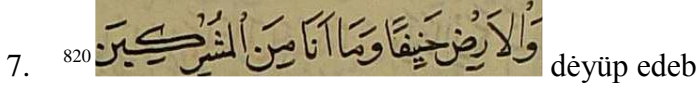 7. 820 وَالْاَرْضِ حَنِيفًا وَمَا اَنَا مِنَ الْمُشْرِكِينَ dėyüp edeb